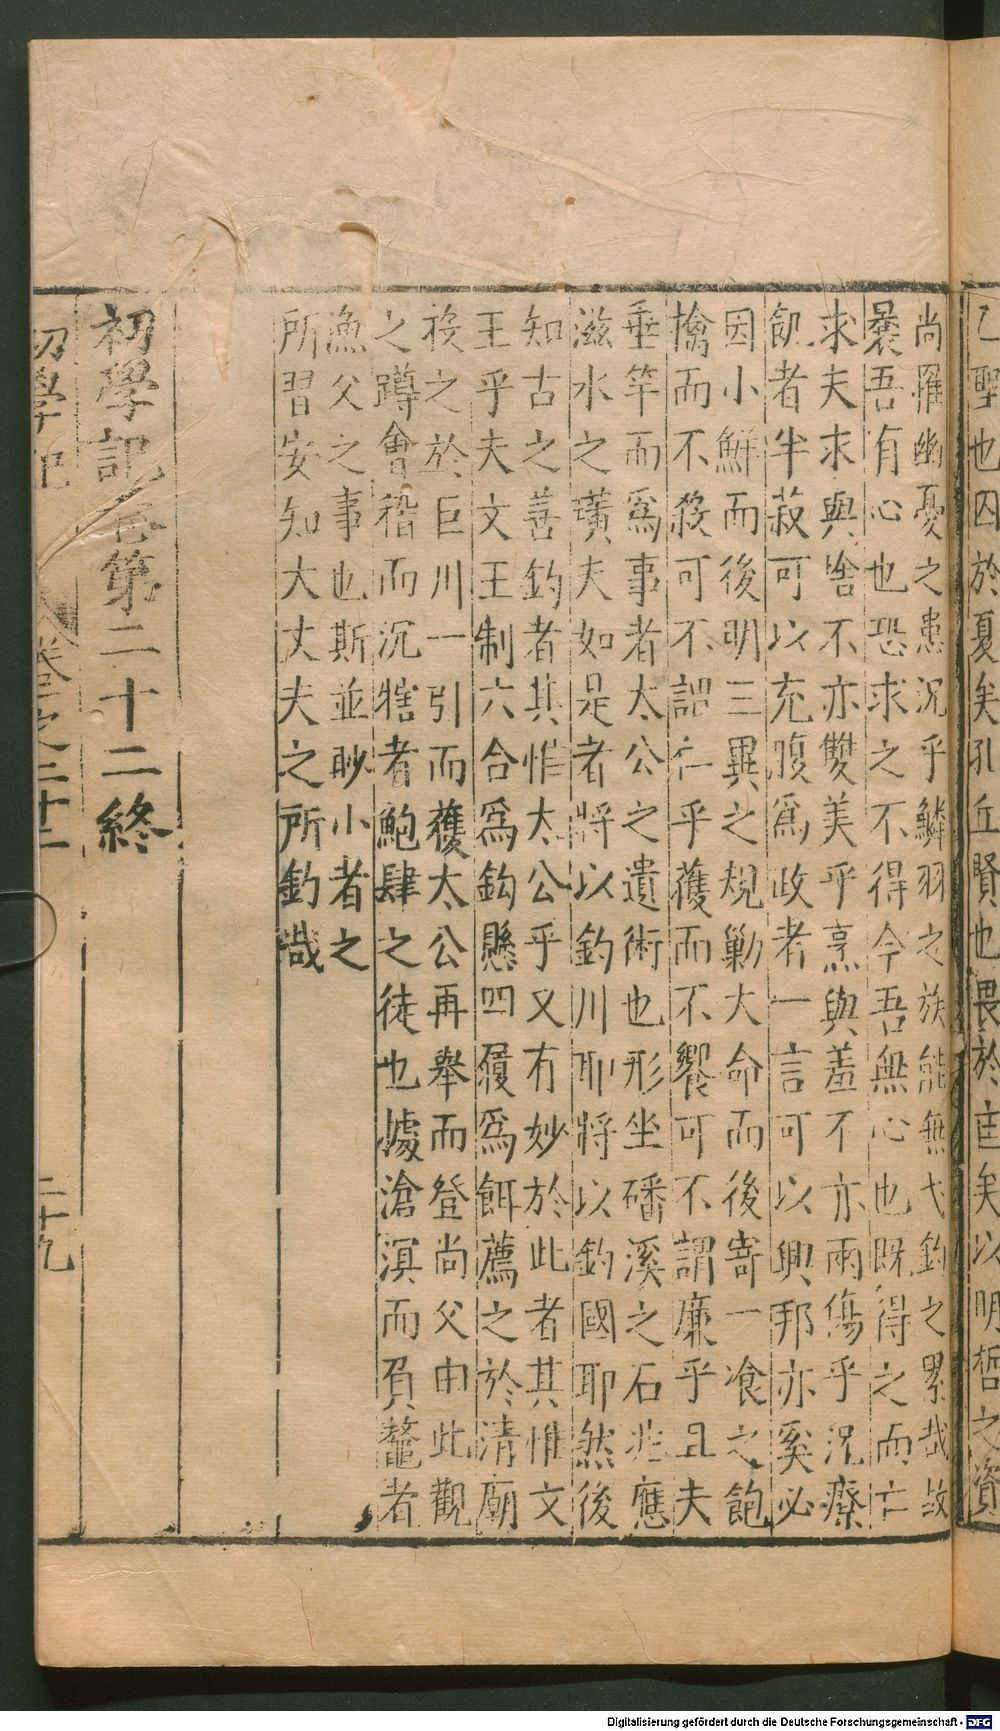 聖也囚於夏矣孔丘賢也畏於匡矣以明哲之資
尚罹幽憂之患沉乎鱗羽之族能無弋釣之累哉故
曩吾有心也恐求之不得今吾無心也旣得之而亡
求夫求與捨不亦雙美乎烹與羞不亦兩傷乎況療
飢者半菽可以充腹爲政者一言可以興邦亦奚必
因小鮮而後明三異之規勦大命而後寄一飡之飽
擒而不殺可不謂仁乎獲而不饗可不謂廉乎且夫
垂竿而爲事者太公之遺術也形坐磻溪之石兆應
滋水之璜夫如是者將以釣川耶將以釣國耶然後
知古之善釣者其惟太公乎又有妙於此者其惟文
王乎夫文王制六合爲鈎懸四履爲餌薦之於清廟
投之於巨川一引而獲太公再舉而登尚父由此觀
之蹲會稽而沉犗者鮑肆之徒也據滄溟而負鼇者
漁父之事也斯並眇小者之
所習安知大丈夫之所釣哉
初學記卷第二十二終
初學記
卷之二十二
二十九
Digitalisierung gefördert durch die Deutsche Forschungsgemeinschaft - DFG